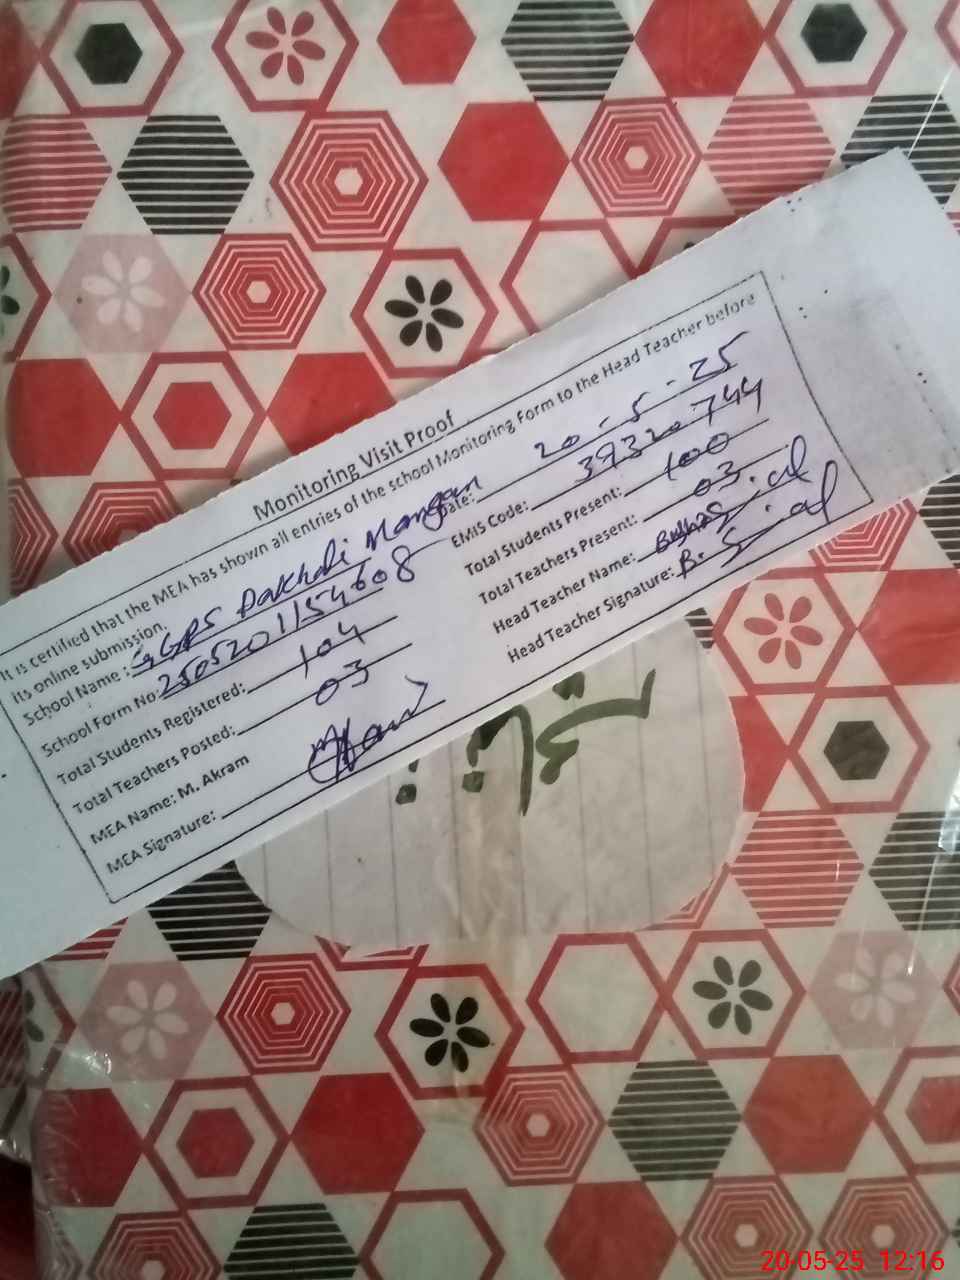 Monitoring Visit Proof
It is certified that the MEA has shown all entries of the school Monitoring Form to the Head Teacher before
its online submission.
School Name: GGPS Dakhali Mangan Date: 20-5-25
School Form No: 2505201154608 EMIS Code: 39320744
Total Students Registered: 104 Total Students Present: 100
Total Teachers Posted: 03 Total Teachers Present: 03
MEA Name: M. Akram Head Teacher Name:
MEA Signature: Head Teacher Signature:
20-05-25 12:16